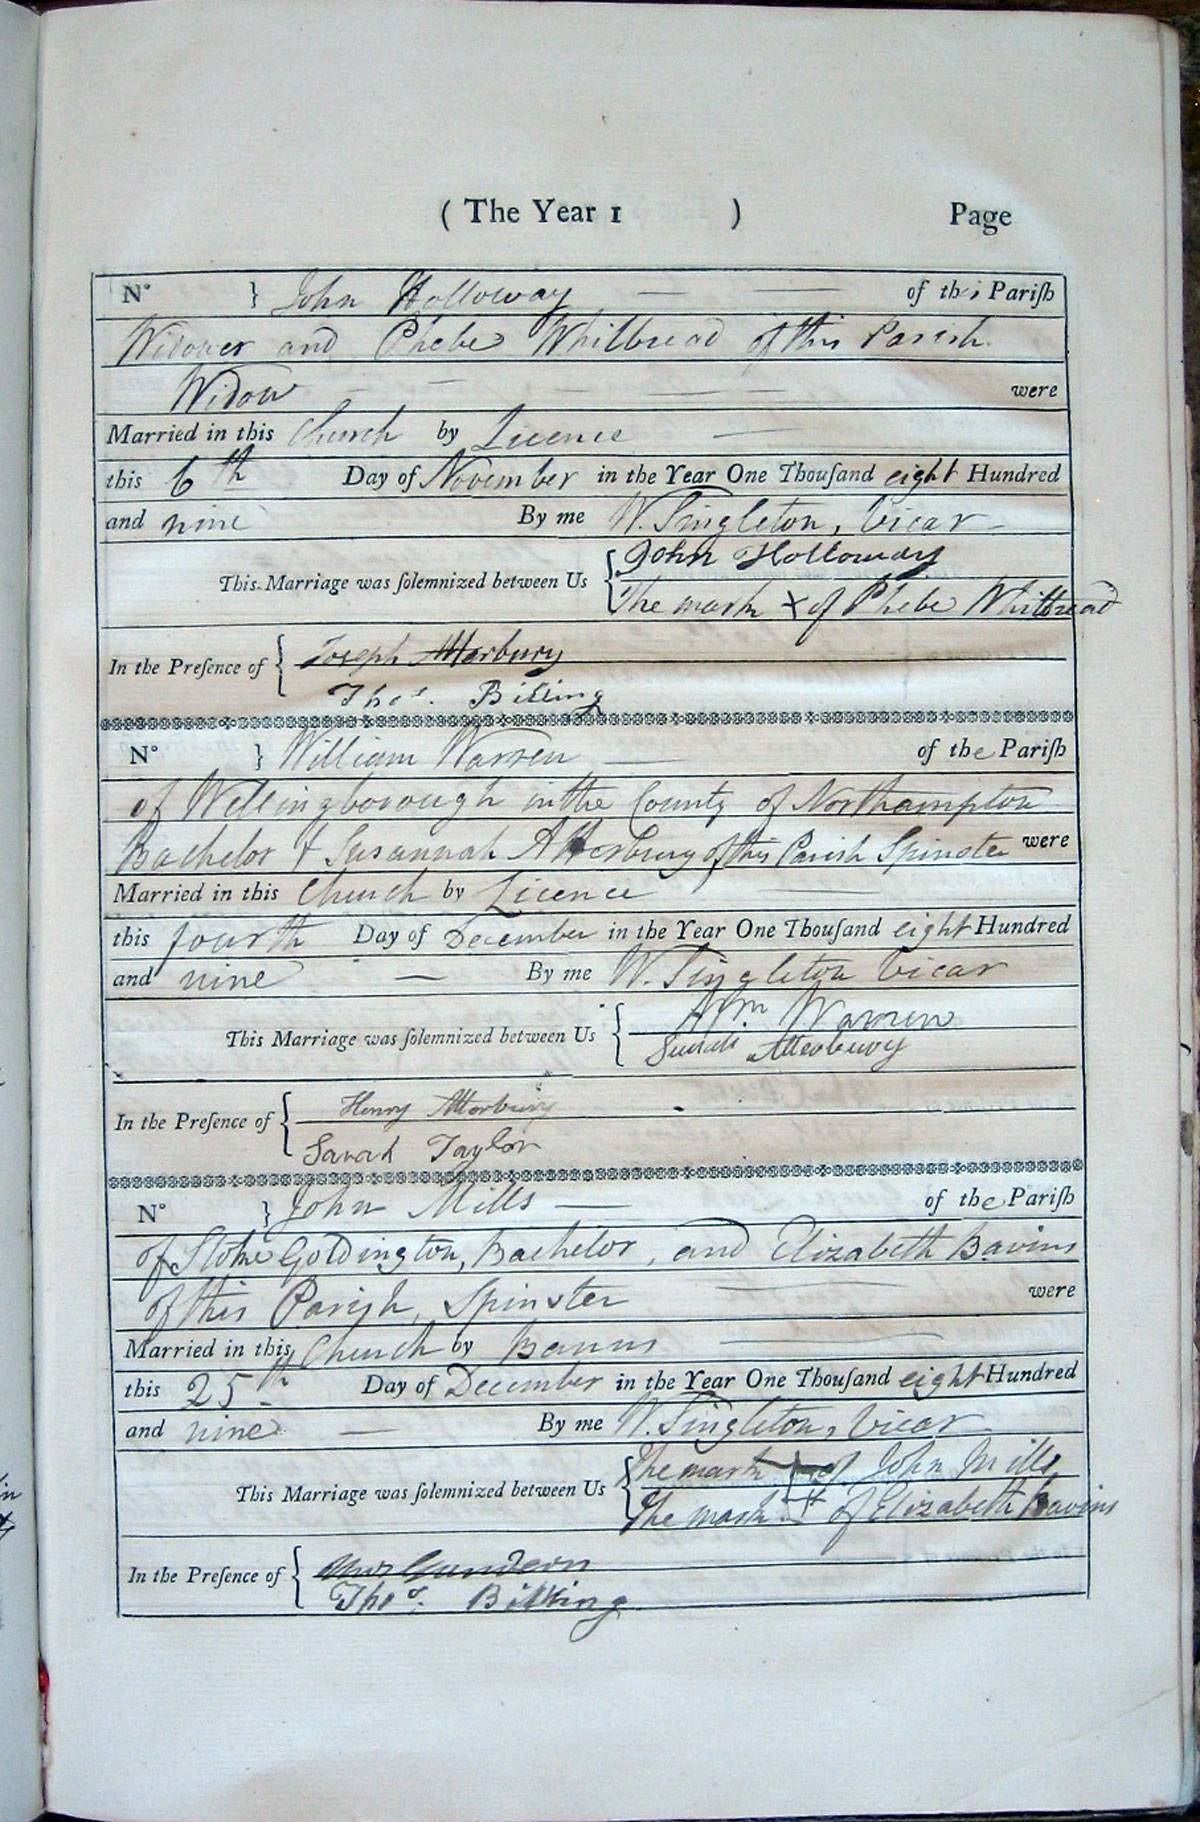 ( The Year 1 ) Page
N° } John Holloway of this Pariſh
Widower and Phebe Whitbread of this Parish
Widow were
Married in this Church by Licence
this 6th Day of November in the Year One Thouſand eight Hundred
and nine By me W. Singleton, Vicar
This Marriage was ſolemnized between Us { John Holloway
The mark X of Phebe Whitbread
In the Preſence of { Joseph Atterbury
Thos. Billing
N° } William Warren of the Pariſh
of Wellingborough in the County of Northampton
Bachelor & Susannah Atterbury of this Parish Spinster were
Married in this Church by Licence
this fourth Day of December in the Year One Thouſand eight Hundred
and nine By me W. Singleton Vicar
This Marriage was ſolemnized between Us { Wm Warren
Atterbury
In the Preſence of { Henry Atterbury
Sarah Taylor
N° } John Mills of the Pariſh
of Stoke Goldington, Bachelor, and Elizabeth Bavins
of this Parish, Spinster were
Married in this Church by Banns
this 25th Day of December in the Year One Thouſand eight Hundred
and nine By me W. Singleton, Vicar
This Marriage was ſolemnized between Us { The mark + of John Mills
The mark + of Elizabeth Bavins
In the Preſence of {
Thos. Billing